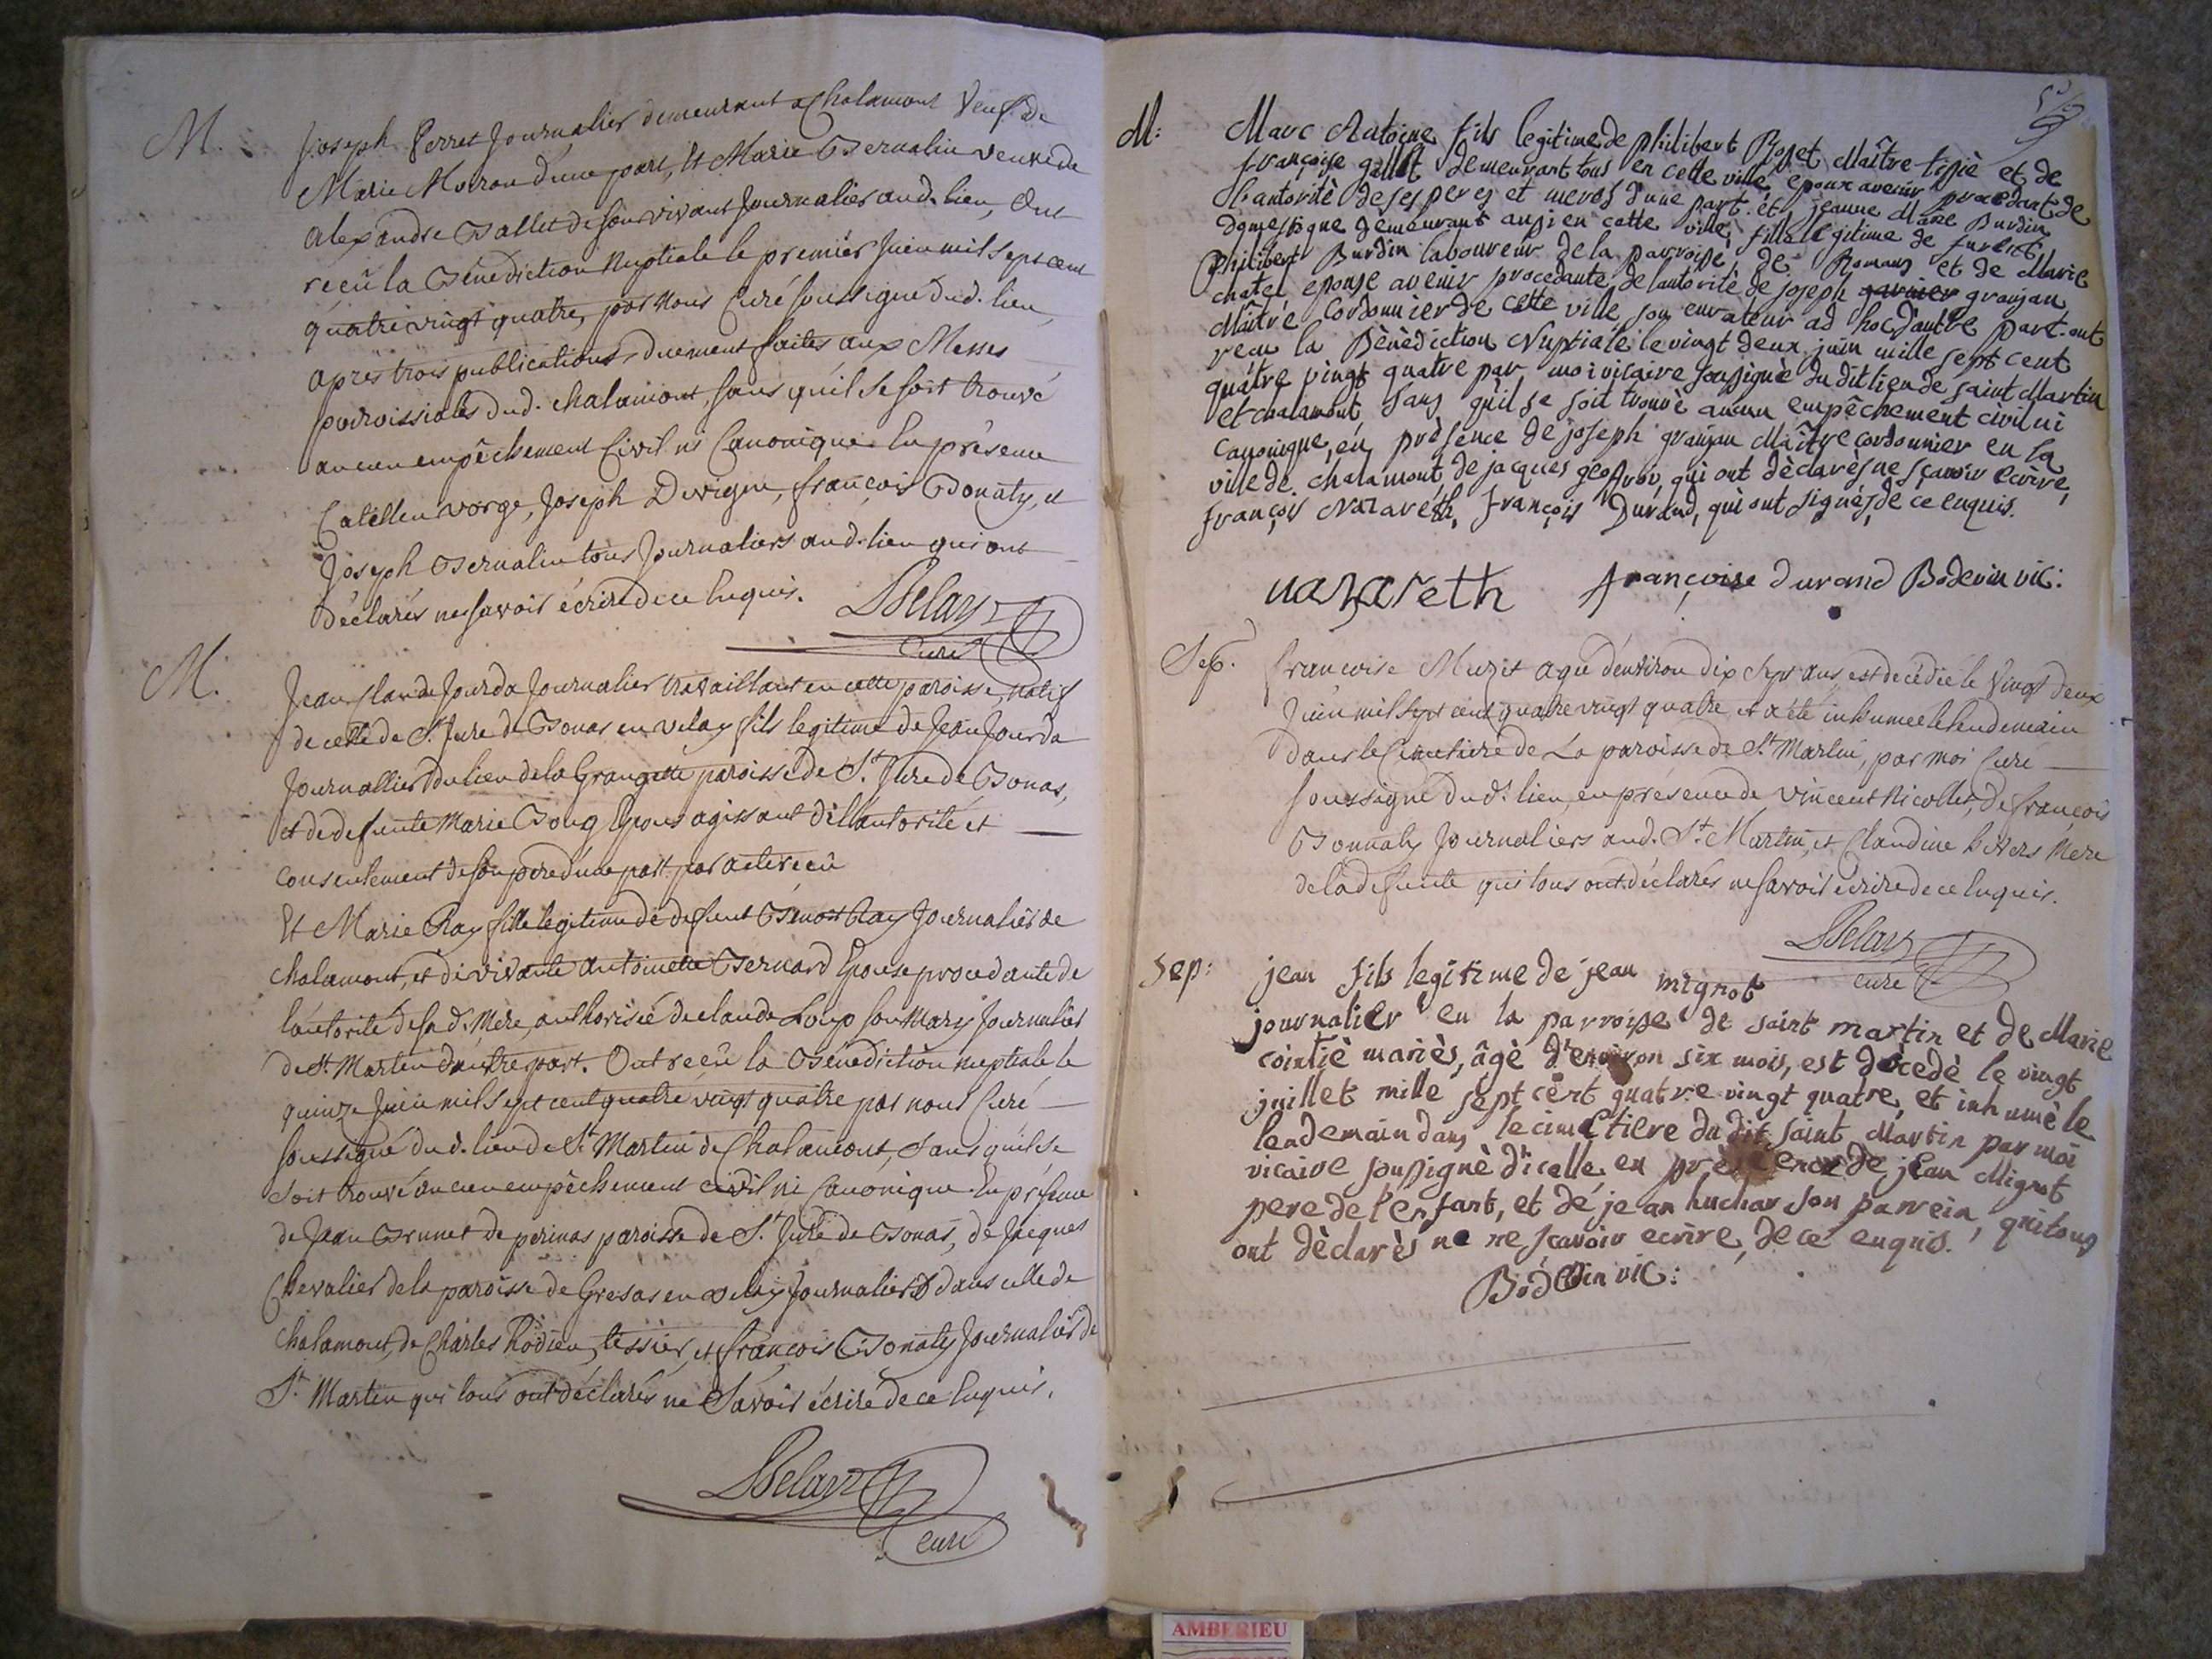 M.
Joseph Perret Journalier demeurant a Chalamont Veuf de
Marie Moiron d'une part, Et Marie Bernalin veuve de
Alexandre Ballet de son vivant Journalier aud. lieu, Ont
reçû la Bénédiction Nuptiale le premier Juin mil Sept cent
quatre vingt quatre, par Nous Curé soussigné dud. lieu,
après trois publications duement faites aux Messes
paroissiales dud. chalamont, sans qu'il se soit trouvé
aucun empêchement Civil ni Canonique. En présence
Catellin vorge, Joseph Duvigne, françois Bonnaty, et
Joseph Bernalin tous Journaliers aud. lieu qui ont
déclarés ne savoir écrire de ce Enquis.
Belay
curé
M.
Jean Claude Jourda Journalier travaillant en cette paroisse, natif
de celle de St. Jure de Bonas en velay fils legitime de Jean Jourda
Journallier du lieu de la Grangette paroisse de St. Jure de Bonas,
et de defunte Marie Bong Epoux agissant de l'autorité et
consentement de son pere d'une part par acte reçû
Et Marie Ray fille legitime de defunt Benoit Ray Journalier de
chalamont, et de vivante Antoinette Bernard Epouse procedante de
l'autorité de sa d. Mere, authorisée de claude Loup son Mary Journalier
de St Martin d'autre part. Ont reçû la Bénédiction nuptiale le
quinze Juin mil Sept cent quatre vingt quatre par nous Curé
soussigné dud. lieu de St Martin de Chalamont, Sans qu'il se
soit trouvé aucun empêchement civil ni Canonique. En présence
de Jean Brunet de perinas paroisse de St. Jure de Bonas, de Jacques
Chevalier de la paroisse de Gresas en velay Journaliers dans celle de
Chalamont, de Charles Rodieu tessier, et françois Bonaty Journalier de
St. Martin qui tous ont déclarés ne Savoir écrire de ce Enquis.
Belay
curé
M:
Marc Antoine fils legitime de philibert Roset Maître tissiè et de
françoise gillet demeurant tous en cette ville, epoux avenir procedant de
l'autoritè de ses peres et meres d'une part. et jeanne Marie Burdin
domestique demeurant aussi en cette ville, fille legitime de furent
philibert Burdin laboureur de la parroisse de Romans et de Marie
chatel epouse avenir procedante de l'autoritè de joseph garnier granjan
Maître Cordonnier de cette ville son curateur ad hoc d'autre part. ont
recu la Bènèdiction Nuptiale le vingt deux juin mille sept cent
quatre vingt quatre par moi vicaire soussignè du dit lieu de saint Martin
et chalamont, sans qu'il se soit trouvè aucun empêchement civil ni
canonique, en prèsence de joseph granjan Maître cordonnier en la
ville de chalamont, de jacques geoffroy, qui ont dèclarès ne sçavoir ecrire,
françois Nazareth, françois Durand, qui ont signès de ce enquis.
nazareth françoise durand Bodevin vic:
Sep.
françoise Muzit agée d'environ dix Sept ans, est decédée le Vingt deux
Juin mil Sept cent quatre vingt quatre et a été inhumée le lendemain
dans le Cimetiere de La paroisse de St Martin, par moi Curé
soussigné dud. lieu, en présence de vincent Nicollet, de françois
Bonnaty Journaliers aud. St. Martin, et Claudine Mere
de la defunte qui tous ont déclarés ne savoir écrire de ce Enquis.
Belay
curé
Sep:
jean fils legitime de jean mignot
journalier en la parroisse de saint martin et de Marie
cointiè mariès, âgè d'environ six mois, est dècedè le vingt
juillet mille sept cent quatre vingt quatre, et inhumè le
lendemain dans le cimetiere du dit saint Martin par moi
vicaire soussignè d'icelle, en prèsence de jean Mignot
pere de l'enfant, et de jean huchar son parrein, qui tous
ont dèclarès ne ne sçavoir ecrire, de ce enquis.
Bodevin vic:
AMBERIEU